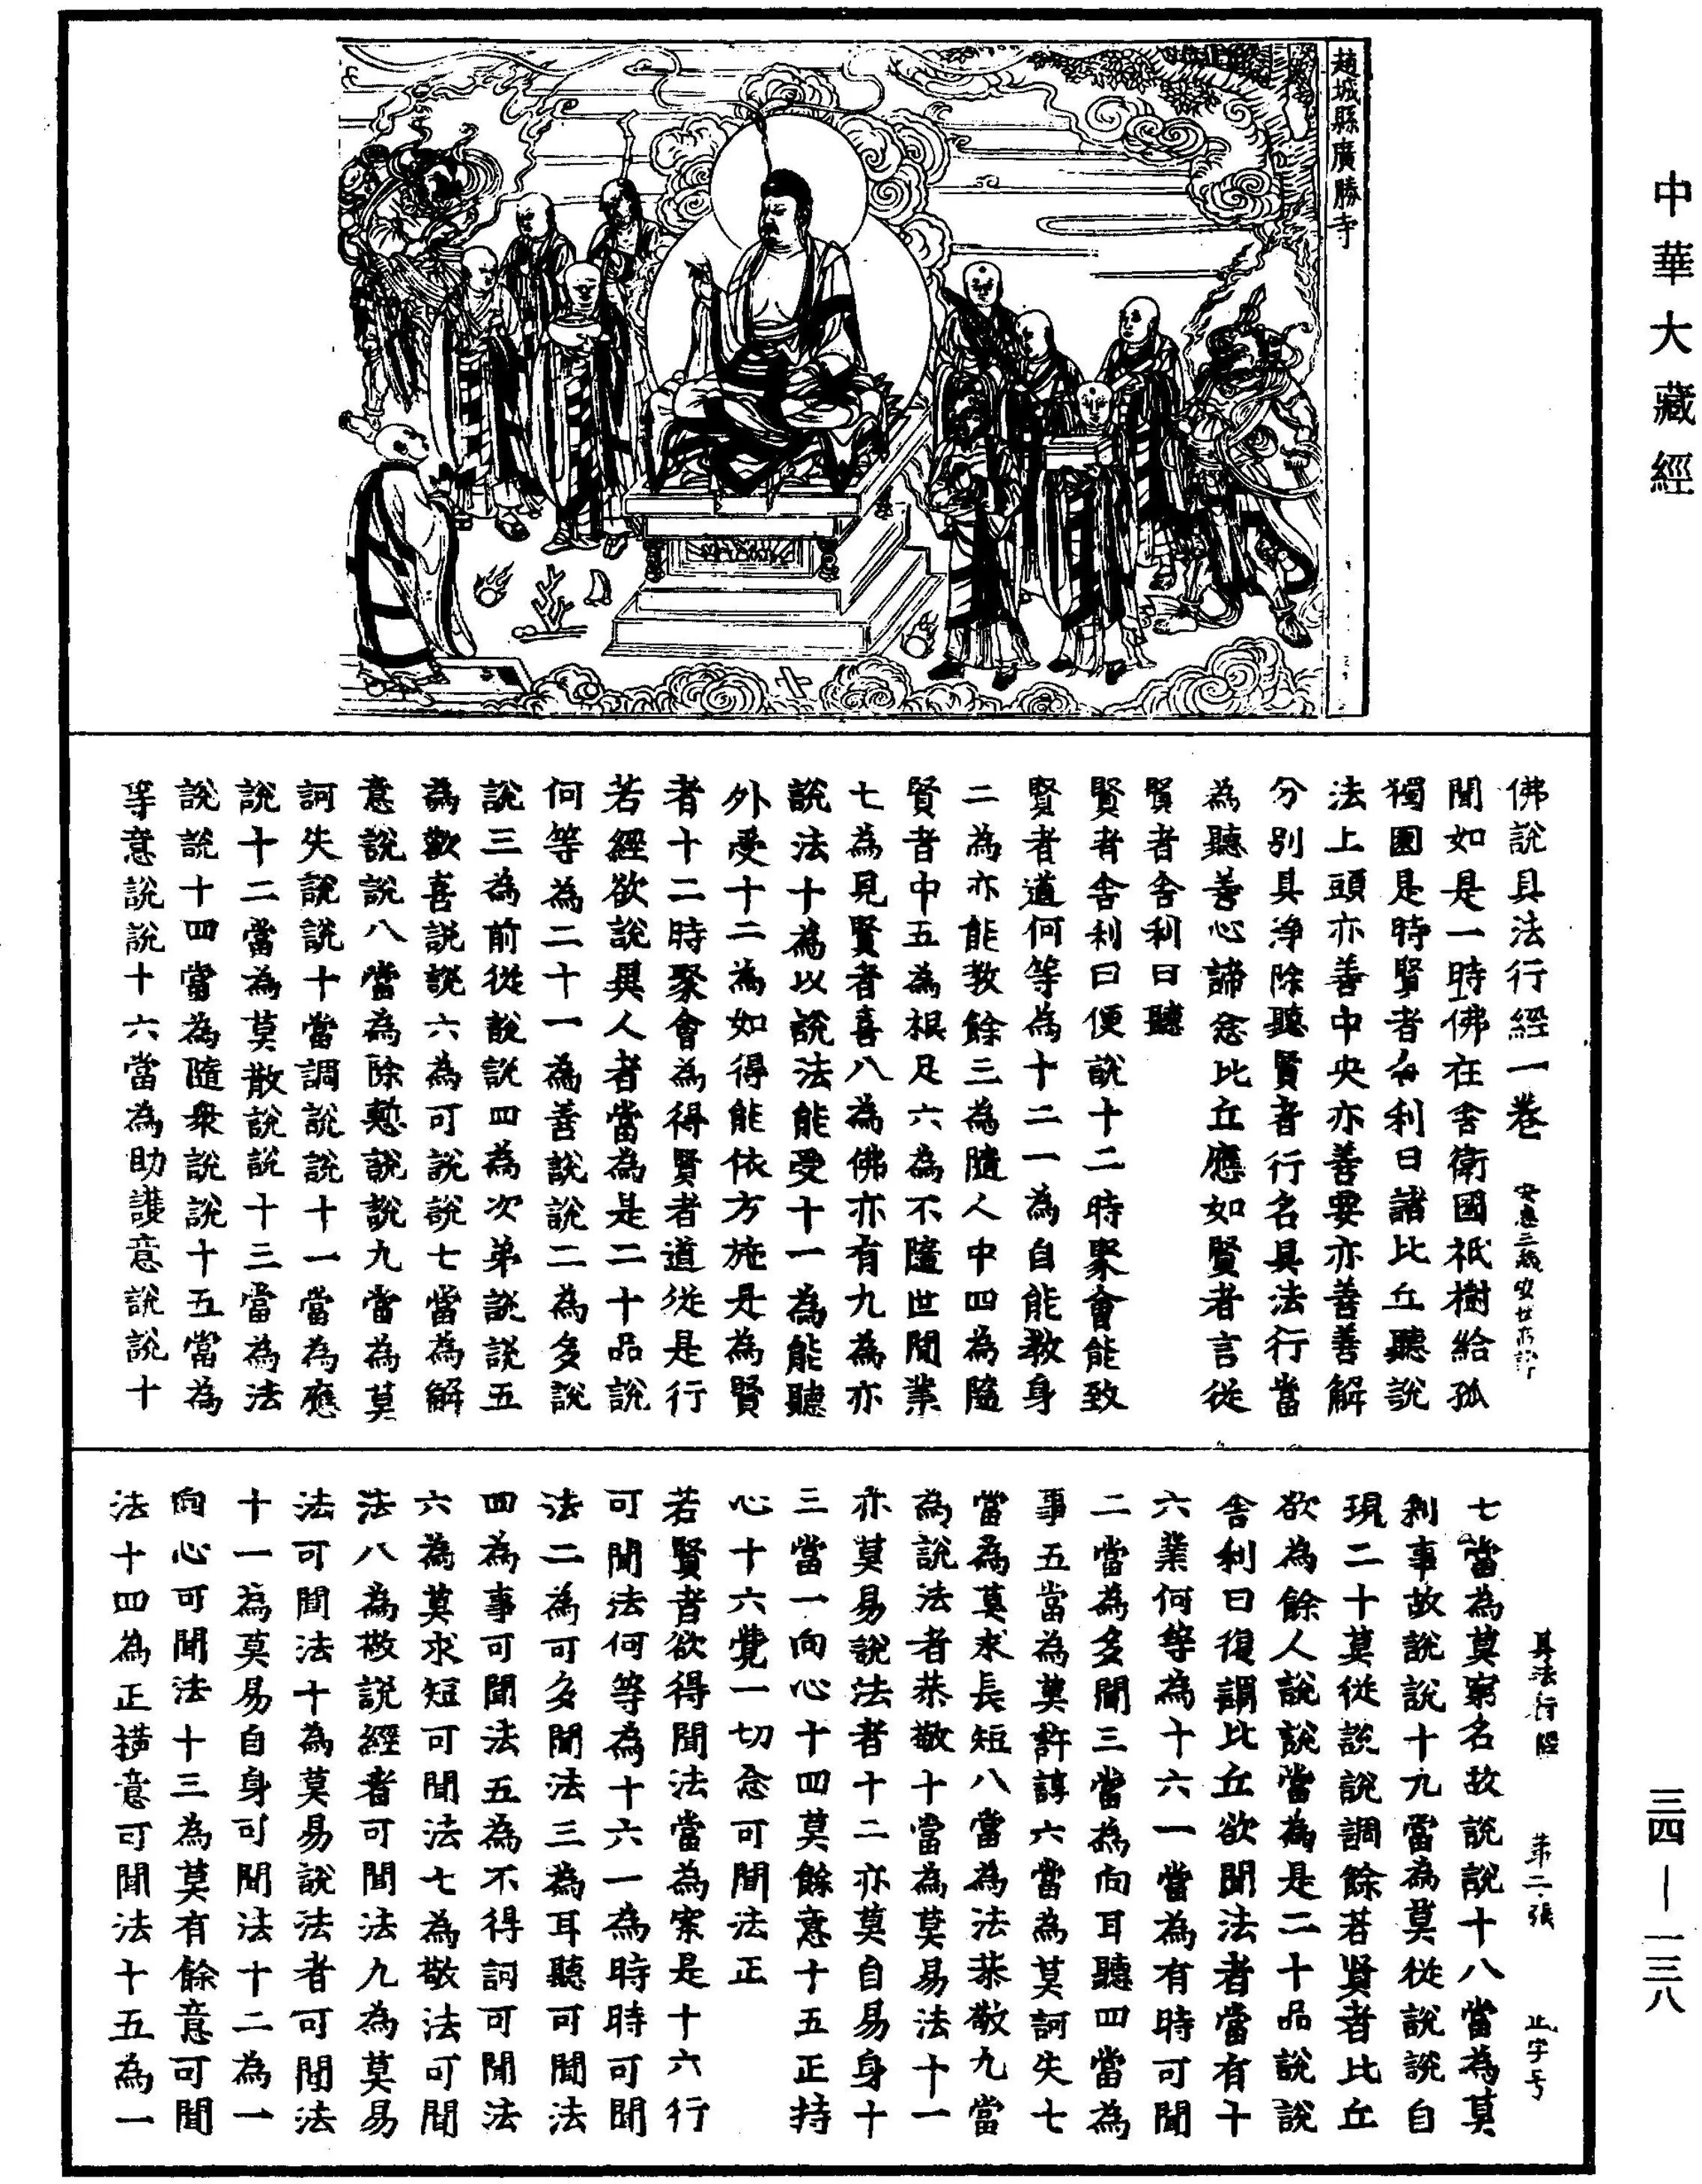 中華大藏經
三四—一三八
趙城縣廣勝寺
佛說具法行經一卷
聞如是一時佛在舍衛國祇樹給孤
獨園是時賢者舍利曰諸比丘聽說
法上頭亦善中央亦善要亦善善解
分別具淨除聽賢者行名具法行當
為聽善心諦念比丘應如賢者言從
賢者舍利曰聽
賢者舍利曰便說十二時聚會能致
賢者道何等為十二一為自能教身
二為亦能教餘三為隨人中四為隨
賢者中五為根足六為不隨世間業
七為見賢者喜八為佛亦有九為亦
說法十為以說法能受十一為能聽
外受十二為如得能依方施是為賢
者十二時聚會為得賢者道從是行
若經欲說異人者當為是二十品說
何等為二十一為善說說二為多說
說三為前從說說四為次弟說說五
為歡喜說說六為可說說七當為解
意說說八當為除慙說說九當為莫
訶失說說十當調說說十一當為應
說十二當為莫散說說十三當為法
說說十四當為隨衆說說十五當為
等意說說十六當為助護意說說十
具法行經 第二張 止字号
七當為莫窮名故說說十八當為莫
利事故說說十九當為莫從說說自
現二十莫從說說調餘若賢者比丘
欲為餘人說說當為是二十品說說
舍利曰復謂比丘欲聞法者當有十
六業何等為十六一當為有時可聞
二當為多聞三當為向耳聽四當為
事五當為莫訶諄六當為莫訶失七
當為莫求長短八當為法恭敬九當
為說法者恭敬十當為莫易法十一
亦莫易說法者十二亦莫自易身十
三當一向心十四莫餘意十五正持
心十六覺一切念可聞法正
若賢者欲得聞法當為案是十六行
可聞法何等為十六一為時時可聞
法二為可多聞法三為耳聽可聞法
四為事可聞法五為不得訶可聞法
六為莫求短可聞法七為敬法可聞
法八為敬說經者可聞法九為莫易
法可聞法十為莫易說法者可聞法
十一為莫易自身可聞法十二為一
向心可聞法十三為莫有餘意可聞
法十四為正橫意可聞法十五為一